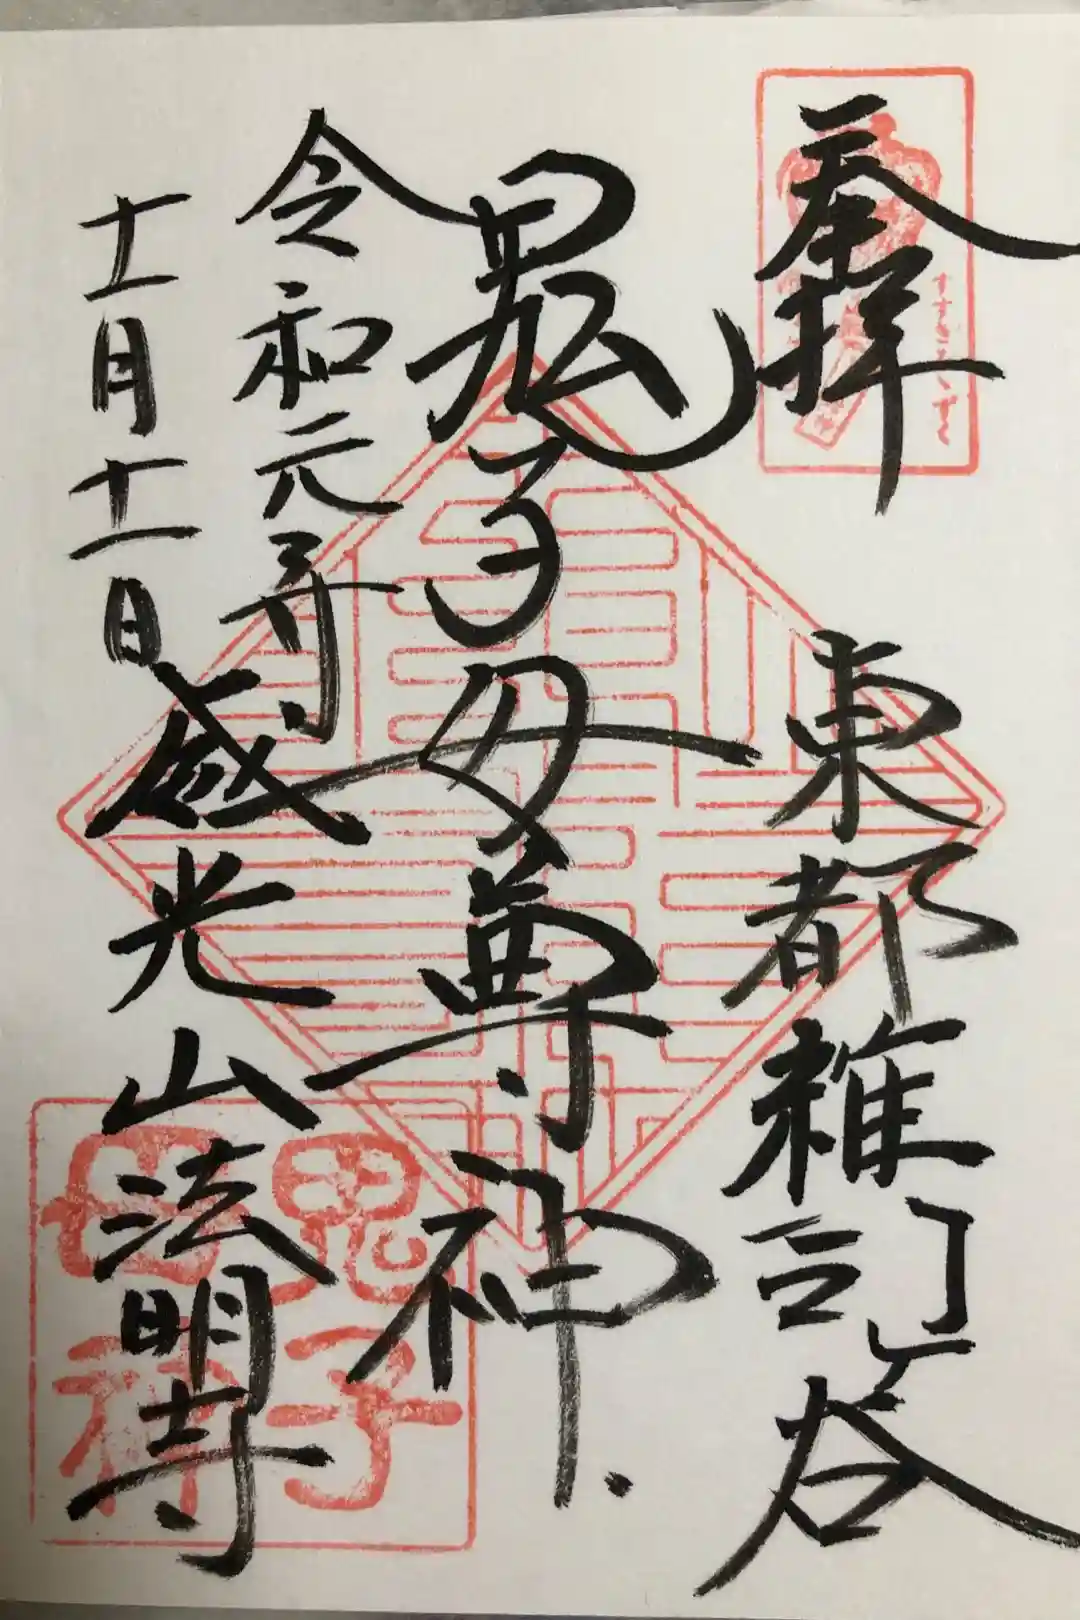 奉拝
すすきみみずく
東都雑司ヶ谷
鬼子母尊神
令和元年
十一月十一日
威光山法明寺
鬼子
母神